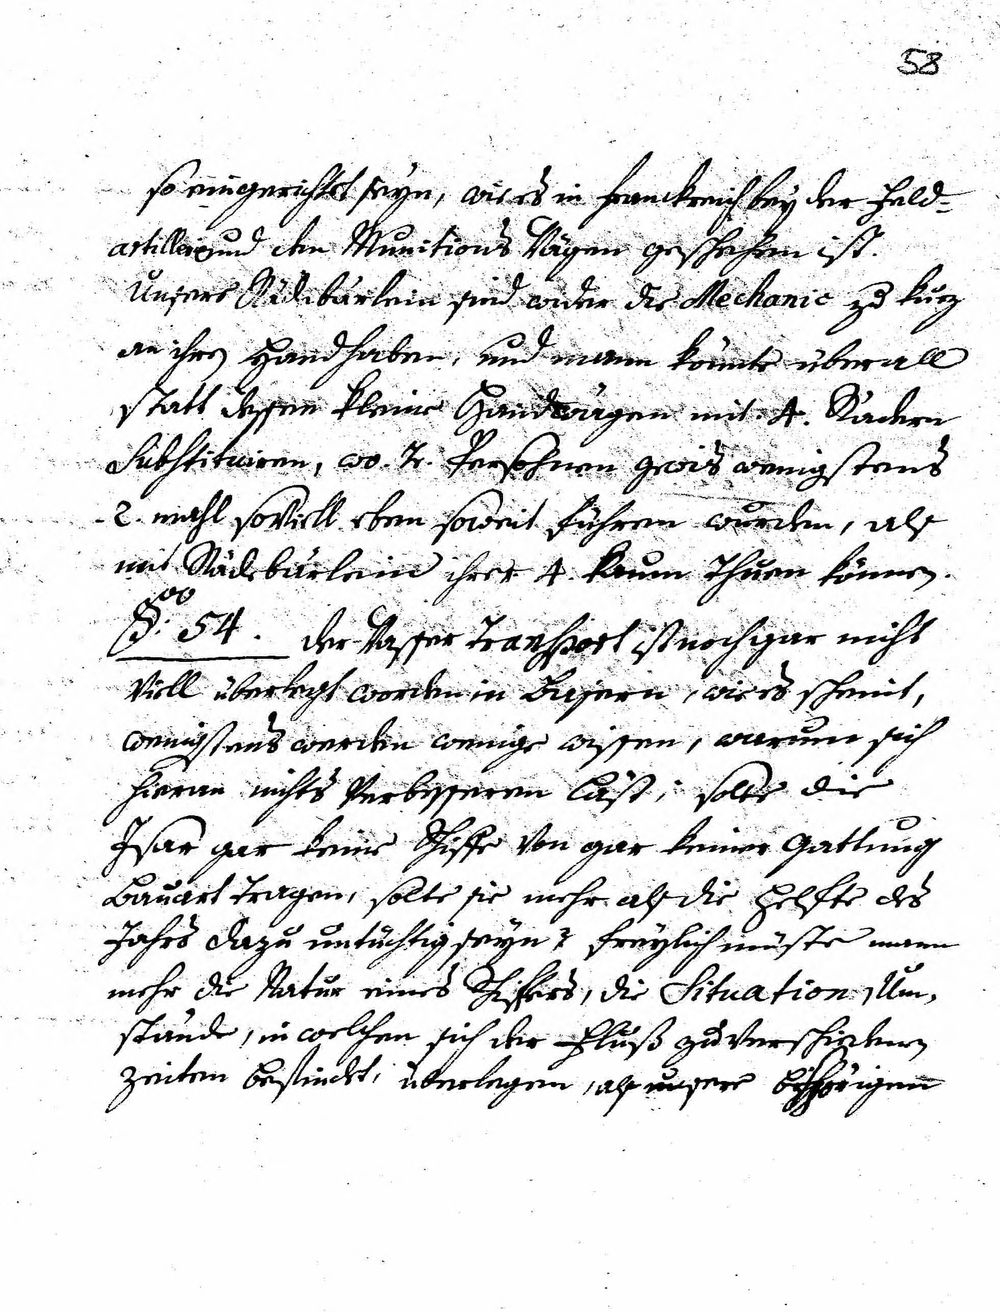 58
so eingerichtet seyn, wie es in Franckreich bey der Feld-
artillerie und den Munitions Wägen geschehen ist.
Unsere Rädlbärlein sind wider die Mechanic zu kurz
an ihren Handhaben, und mann könnte überall
statt dessen kleine Handwägen mit 4. Rädern
Substituiren, wo 2. Persohnen gewis wenigstens
2. mahl soviell eben soweit führen wurden, als
mit Rädlbärlein ihrer 4. kaum Thuen können.
§: 54. Der Wasser Transport ist noch gar nicht
viell überlegt worden in Baÿern, wie es scheint,
wenigstens werden wenige wissen, warum sich
hieran nichts Verbesseren läst, solte die
Isar gar keine Schiffe von gar keiner Gattung
Bauart Tragen, solte sie mehr als die Helfte des
Jahrs dazu untüchtig seyn? freylich müste mann
mehr die Natur eines Schiffers, die Situation, Um-
stände, in welchen sich der Fluß zu verschiedenen
Zeiten befindet, überlegen, als unsere bißherigen